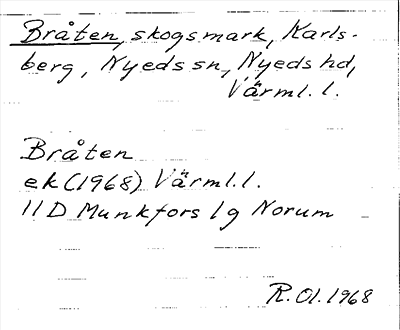 Bråten, skogsmark, Karls-
berg, Nyeds sn, Nyeds hd,
Värml. l.
Bråten
ek (1968) Värml. l.
11D Munkfors lg Norum
R.O1.1968